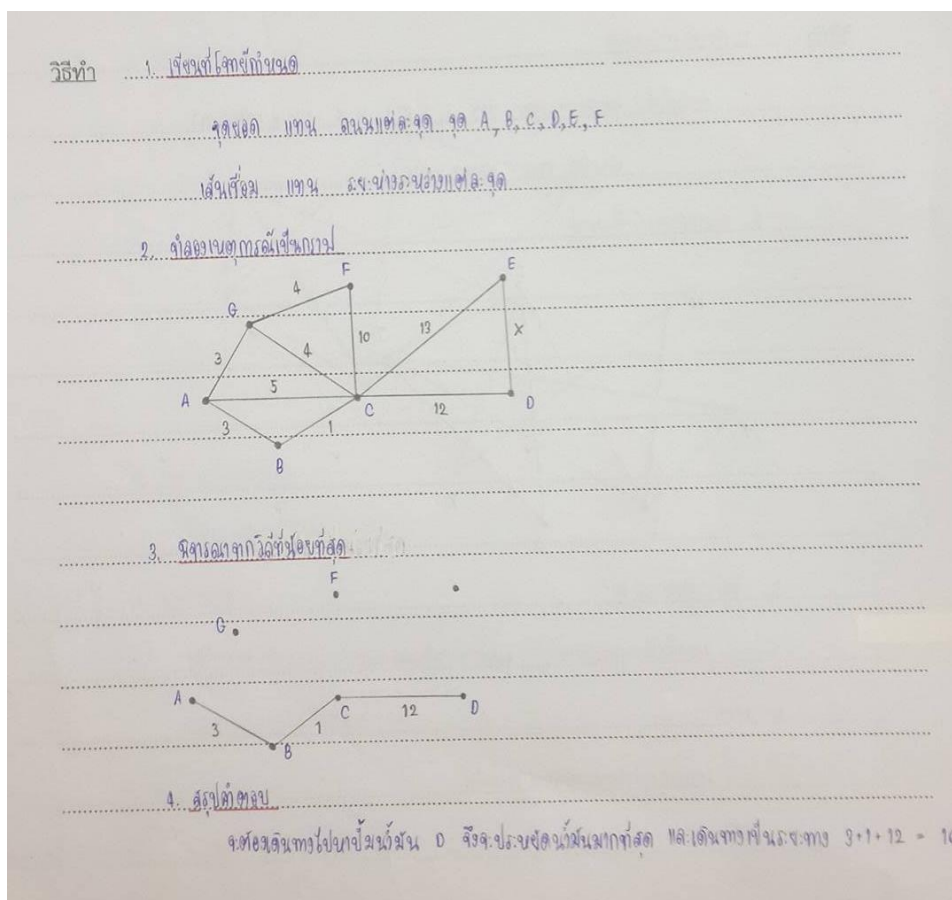 วิธีทำ 1. เขียนที่โจทย์กำหนด
จุดยอด แทน ถนนแต่ละจุด จุด A, B, C, D, E, F
เส้นเชื่อม แทน ระยะห่างระหว่างแต่ละจุด
2. จำลองเหตุการณ์เป็นกราฟ
F E
4
G
10 13 X
3 4
5
A C 12 D
3 1
B
3. พิจารณาจากวิถีที่น้อยที่สุด
F
G
A C 12 D
3 1
B
4. สรุปคำตอบ
จะต้องเดินทางไปหาปั๊มน้ำมัน D จึงจะประหยัดน้ำมันมากที่สุด และเดินทางเป็นระยะทาง 3+1+12 =